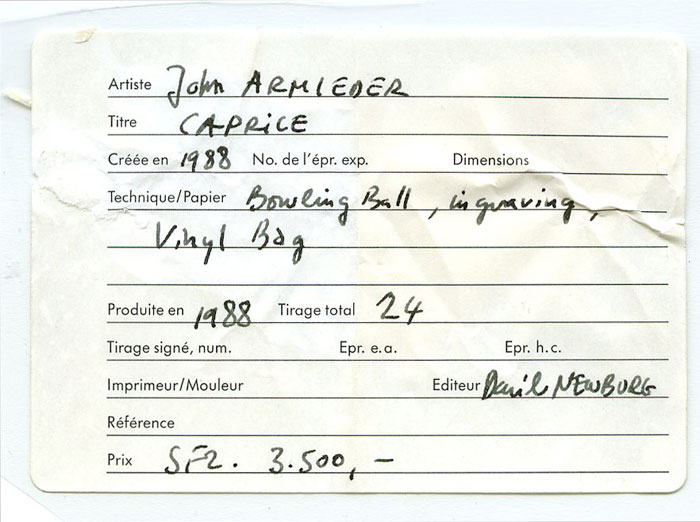 Artiste John ARMLEDER
Titre CAPRICE
Créée en 1988 No. de l'épr. exp. Dimensions
Technique/Papier Bowling Ball, ingraving,
Vinyl Bag
Produite en 1988 Tirage total 24
Tirage signé, num. Epr. e.a. Epr. h.c.
Imprimeur/Mouleur Editeur NEWBURG
Référence
Prix SFr. 3.500,-